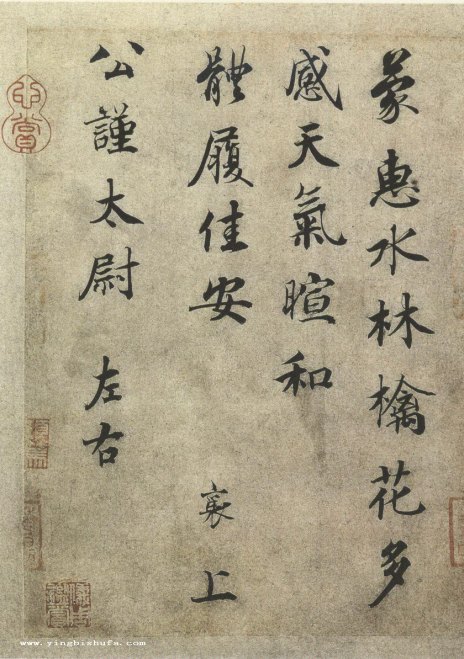 蒙惠水林檎花多
感天氣暄和
體履佳安
襄上
公謹太尉 左右
www.yingbishufa.com